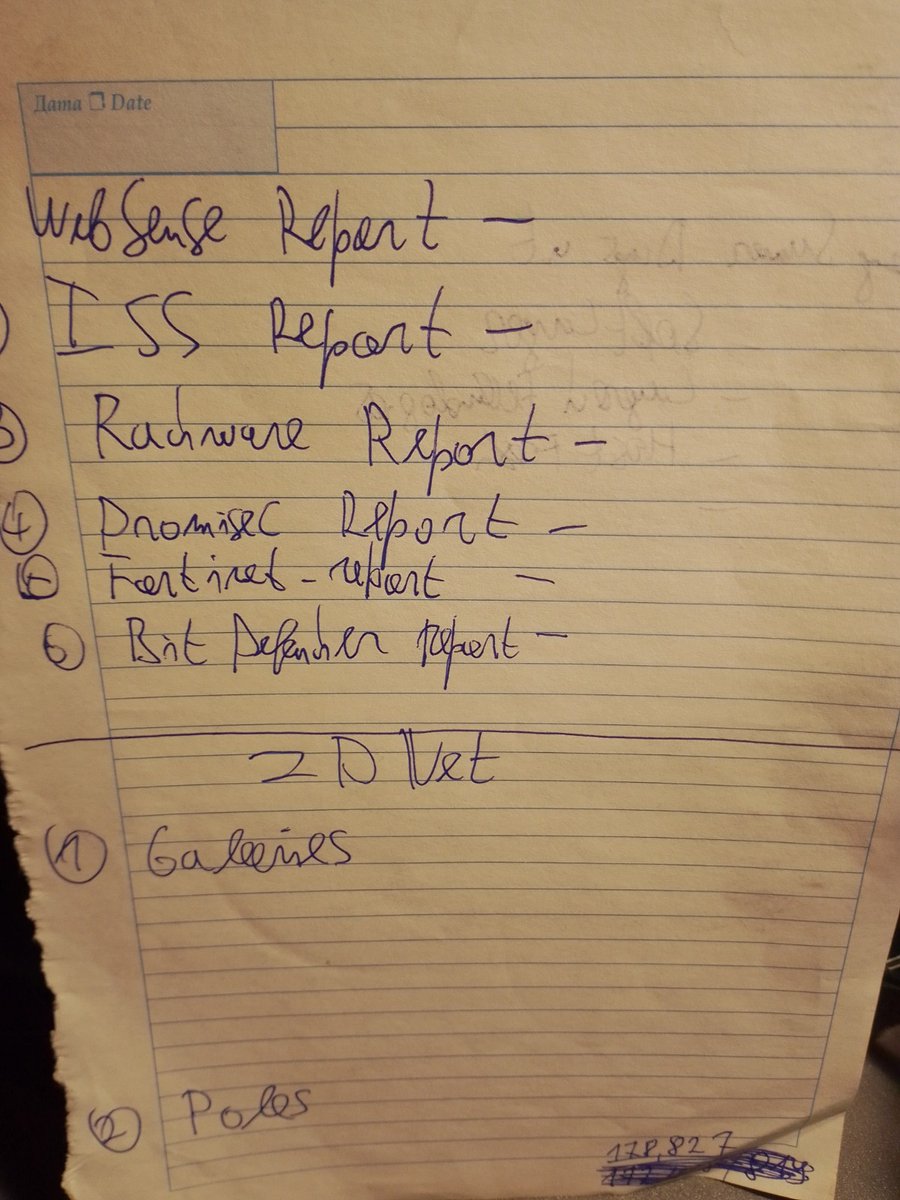 Дата Date
WebSense Report -
ISS Report -
Radware Report -
④ Promisec Report -
Fortinet - report -
⑥ Bit Defender report -
ZDNet
① Galeries
② Poles
178,827